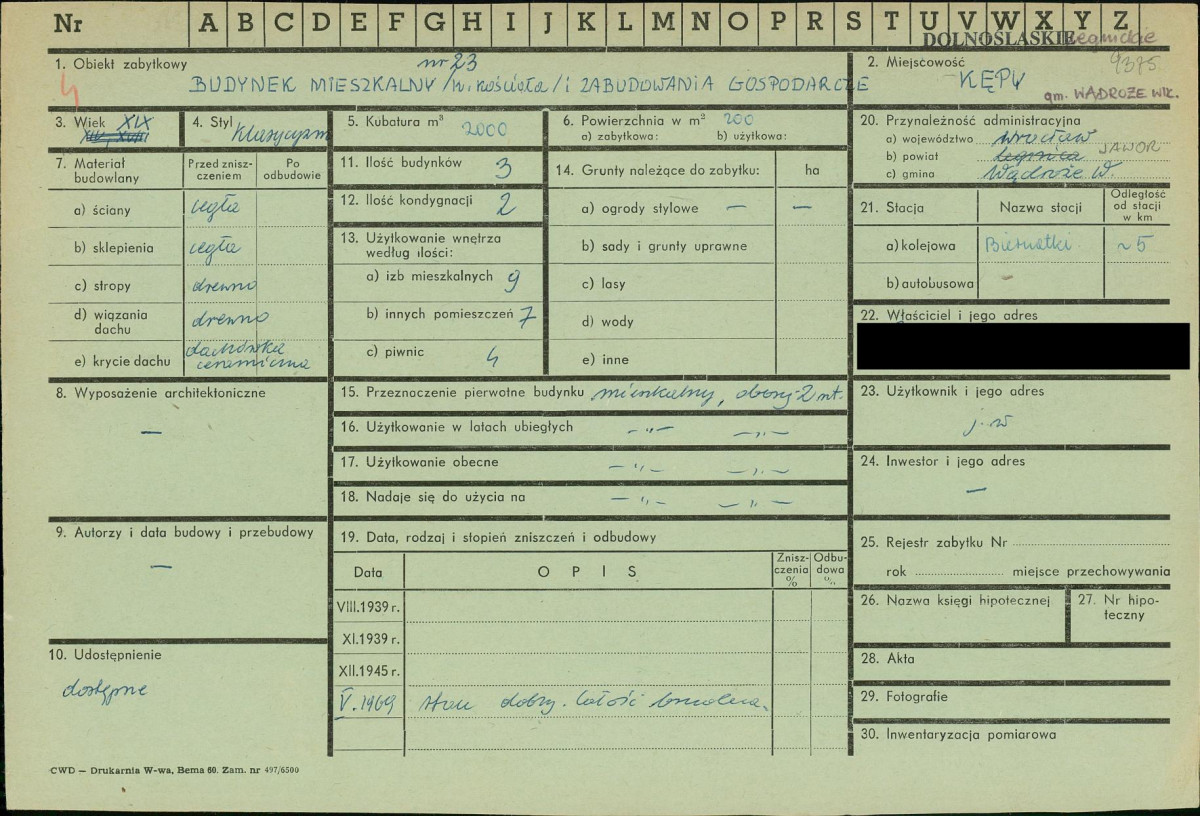 Nr A B C D E F G H I J K L M N O P R S T U V W X Y Z
DOLNOŚLĄSKIE Legnickie
9375
1. Obiekt zabytkowy nr 23
4
BUDYNEK MIESZKALNY /k. kościoła/ i ZABUDOWANIA GOSPODARCZE
2. Miejscowość
KĘPY
gm. WĄDROŻE WLK.
3. Wiek XIX
XIX, XVIII
4. Styl klasycyzm
5. Kubatura m³ 2000
6. Powierzchnia w m² 200
a) zabytkowa: b) użytkowa:
7. Materiał budowlany
Przed zniszczeniem
Po odbudowie
a) ściany cegła
b) sklepienia cegła
c) stropy drewno
d) wiązania dachu drewno
e) krycie dachu dachówka ceramiczna
8. Wyposażenie architektoniczne
—
9. Autorzy i data budowy i przebudowy
—
10. Udostępnienie
dostępne
11. Ilość budynków 3
12. Ilość kondygnacji 2
13. Użytkowanie wnętrza według ilości:
a) izb mieszkalnych 9
b) innych pomieszczeń 7
c) piwnic 4
14. Grunty należące do zabytku: ha
a) ogrody stylowe — —
b) sady i grunty uprawne
c) lasy
d) wody
e) inne
15. Przeznaczenie pierwotne budynku mieszkalny, obory-2 szt.
16. Użytkowanie w latach ubiegłych –„– –„–
17. Użytkowanie obecne –„– –„–
18. Nadaje się do użycia na –„– –„–
19. Data, rodzaj i stopień zniszczeń i odbudowy
Data OPIS Zniszczenia % Odbudowa %
VIII.1939 r.
XI.1939 r.
XII.1945 r.
V.1969 stan dobry. całość
20. Przynależność administracyjna
a) województwo Wrocław
b) powiat Legnica JAWOR
c) gmina Wądroże W.
21. Stacja Nazwa stacji Odległość od stacji w km
a) kolejowa Biernatki ~5
b) autobusowa
22. Właściciel i jego adres
23. Użytkownik i jego adres
j.w
24. Inwestor i jego adres
—
25. Rejestr zabytku Nr
rok miejsce przechowywania
26. Nazwa księgi hipotecznej
27. Nr hipoteczny
28. Akta
29. Fotografie
30. Inwentaryzacja pomiarowa
CWD — Drukarnia W-wa, Bema 60. Zam. nr 497/6500